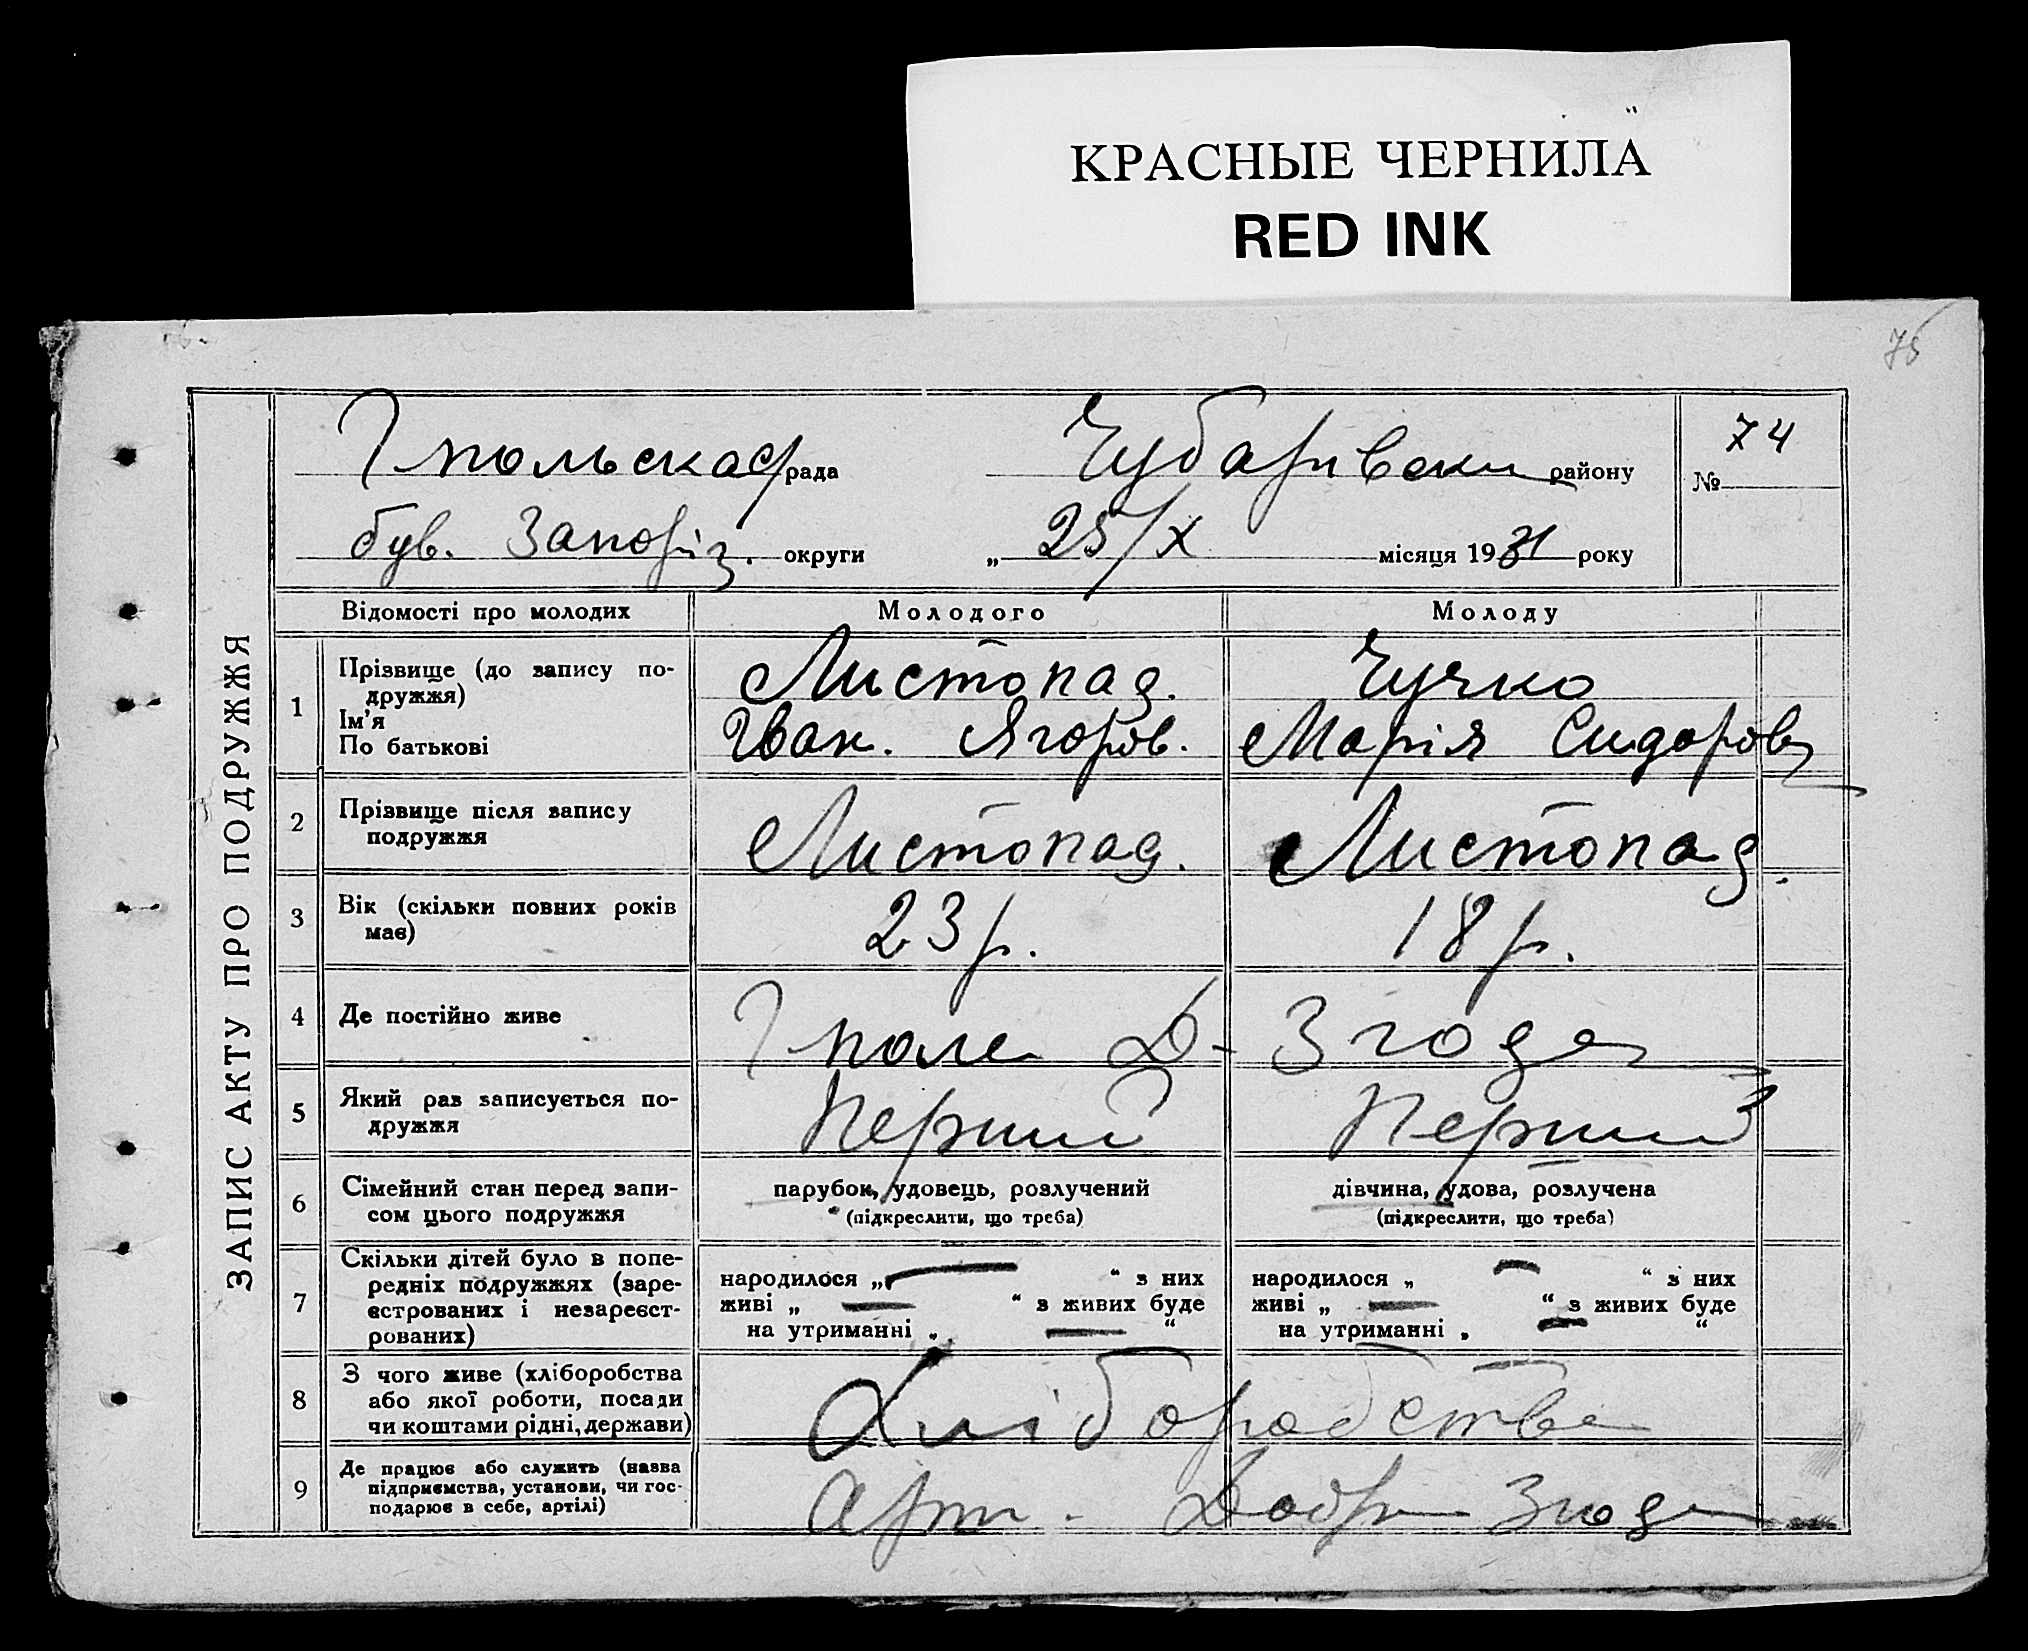 КРАСНЫЕ ЧЕРНИЛА
RED INK
75
ЗАПИС АКТУ ПРО ПОДРУЖЖЯ
Гпольска с/рада Чубарівськ району № 74
був. Запоріз. округи „ 25/X місяця 1931 року
Відомості про молодих Молодого Молоду
1 Прізвище (до запису по-
дружжя)
Ім'я
По батькові
Листопад. Чучко
Іван. Ягоров. Марія Сидоров
2 Прізвище після запису
подружжя
Листопад. Листопад.
3 Вік (скільки повних років
має)
23 р. 18 р.
4 Де постійно живе
Гполе Д- Згода
5 Який раз записується по-
дружжя
Перший Перший
6 Сімейний стан перед запи-
сом цього подружжя
парубок, удовець, розлучений
(підкреслити, що треба)
дівчина, удова, розлучена
(підкреслити, що треба)
7 Скільки дітей було в попе-
редніх подружжях (заре-
єстрованих і незареєст-
рованих)
народилося „ — “ з них
живі „ — “ з живих буде
на утриманні „ — “
народилося „ — “ з них
живі „ — “ з живих буде
на утриманні „ — “
8 З чого живе (хліборобства
або якої роботи, посади
чи коштами рідні, держави)
Хліборобства
9 Де працює або служить (назва
підприємства, установи, чи гос-
подарює в себе, артілі)
Арт. Добра Згода